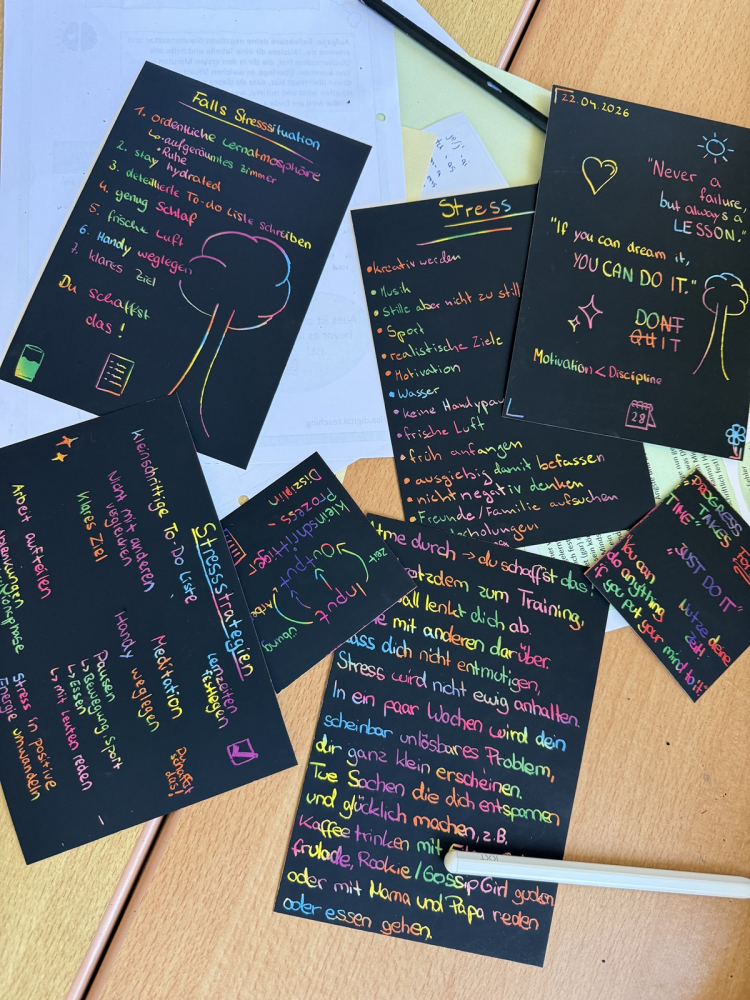 Falls Stresssituation
1. ordentliche Lernatmosphäre
↳ • aufgeräumtes zimmer
• Ruhe
2. stay hydrated
3. detaillierte To-do Liste schreiben
4. genug Schlaf
5. frische Luft
6. Handy weglegen
7. klares Ziel
Du schaffst
das!
Stress
• kreativ werden
• Musik
• Stille aber nicht zu still
• Sport
• realistische Ziele
• Motivation
• Wasser
• keine Handypau
• frische Luft
• früh anfangen
• ausgiebig damit befassen
• nicht negativ denken
• Freunde/Familie aufsuchen
22.04.2026
"Never a
failure,
but always a
LESSON."
"If you can dream it,
YOU CAN DO IT."
DON'T
QUIT
Motivation < Discipline
28
Stressstrategien
Kleinschrittige To-Do Liste
Nicht mit anderen
vergleichen
Klares Ziel
Arbeit aufteilen
Lernzeiten
festlegen
Meditation
Handy weglegen
Pausen
↳ Bewegung Sport
↳ Essen
↳ mit Leuten reden
Stress in positive
Energie umwandeln
Du schaffst
das!
Disziplin
Prozess
Kleinschrittige
Output
Input
Zeit
Übung
PROGRESS
TAKES
TIME"
"JUST DO IT"
You can
do anything
if you put your mind to it"
Nutze deine
Zeit!
tme durch → du schaffst das.
rotzdem zum Training,
all lenkt dich ab.
e mit anderen darüber.
ass dich nicht entmutigen,
Stress wird nicht ewig anhalten.
In ein paar Wochen wird dein
scheinbar unlösbares Problem,
dir ganz klein erscheinen.
Tue Sachen die dich entspannen
und glücklich machen, z.B.
Kaffee trinken mit
frulade, Rookie / Gossip Girl gucken
oder mit Mama und Papa reden
oder essen gehen.